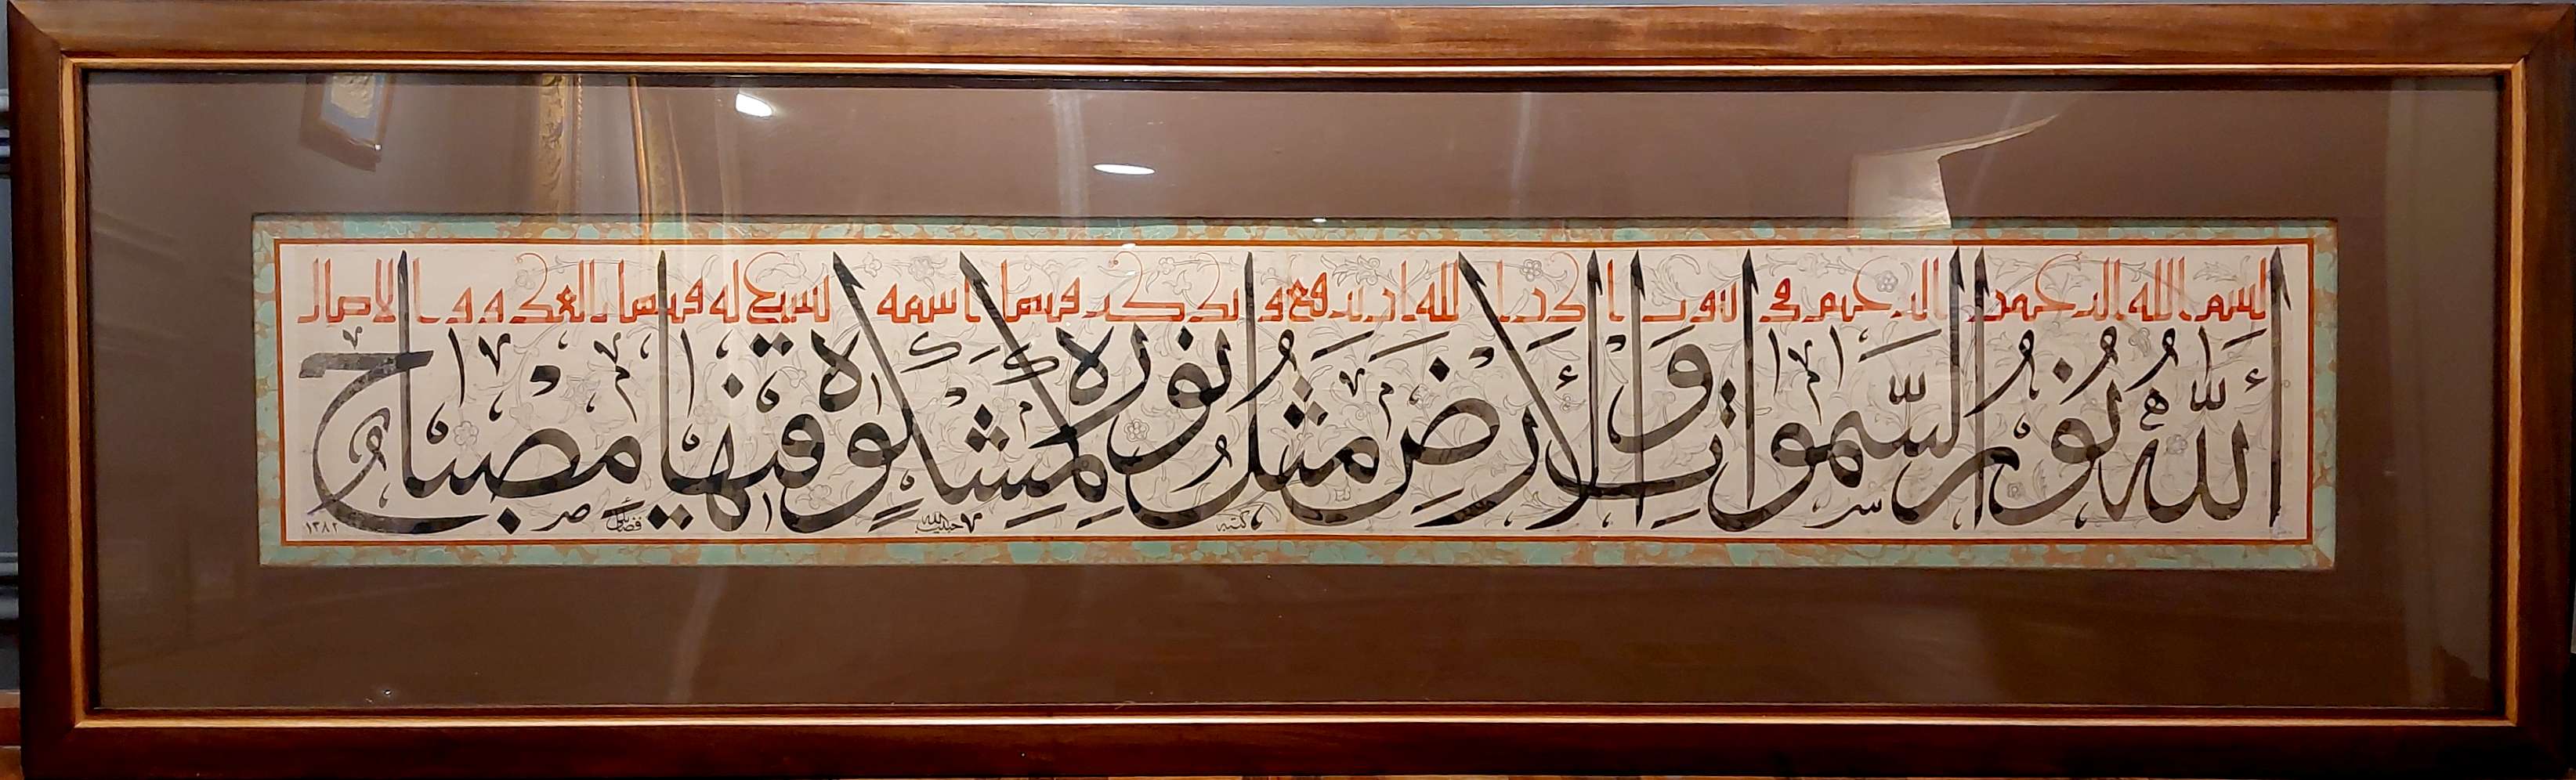 بسم الله الرحمن الرحيم في بيوت اذن الله ان ترفع و يذكر فيها اسمه يسبح له فيها بالغدو و الاصال
اَللّٰهُ نُورُ السَّمٰوَاتِ وَالْأَرْضِ مَثَلُ نُورِهِ كَمِشْكٰوةٍ فِيهَا مِصْبَاحٌ
كتبه حبيب الله فضائلي ١٣٨٢